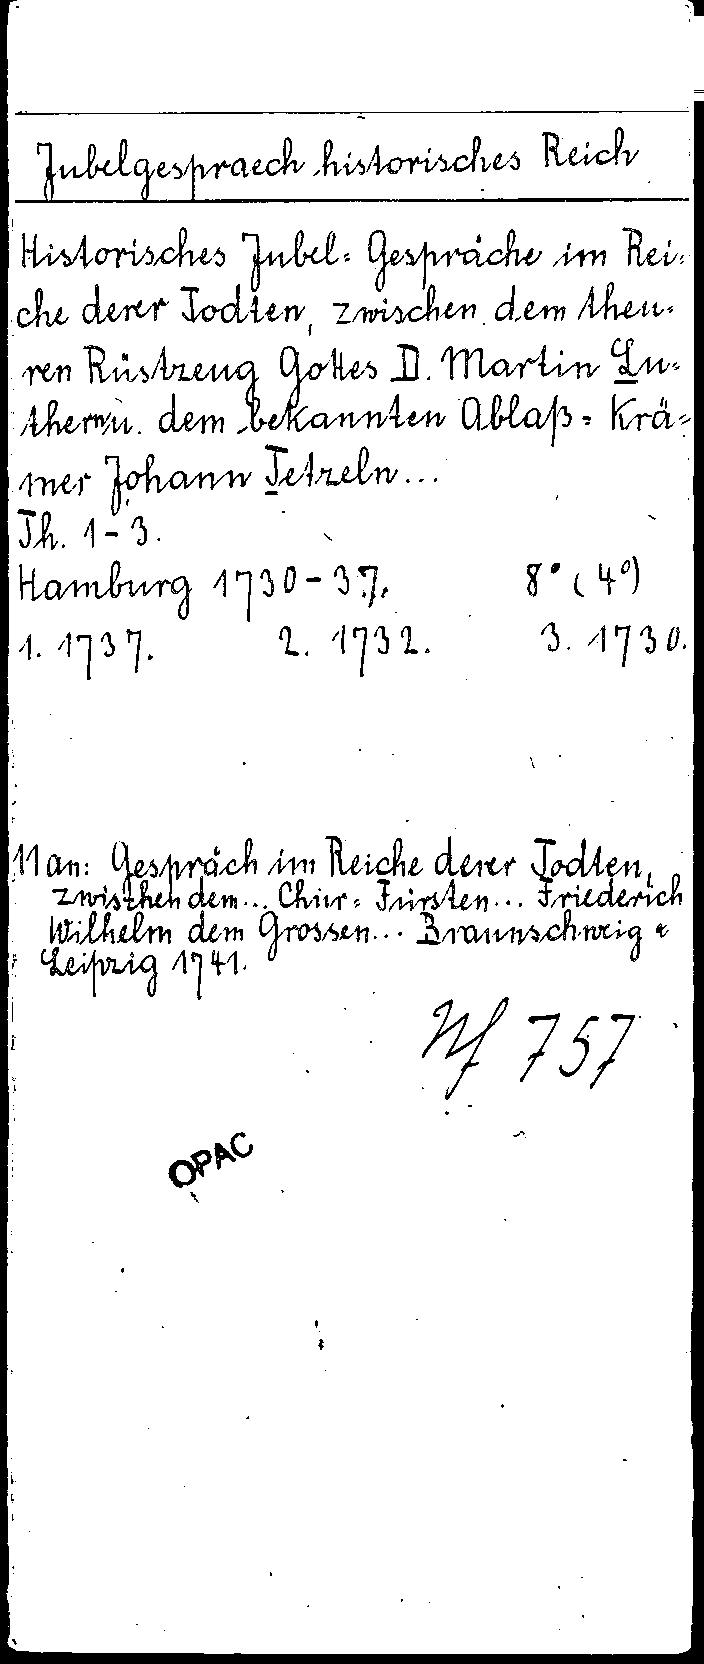 Jubelgespraech historisches Reich
Historisches Jubel= Gespräche im Rei=
che derer Todten, zwischen dem theu=
ren Rüstzeug Gottes D. Martin Lu=
thern u. dem bekannten Ablaß= Krä=
mer Johann Tetzeln...
Th. 1-3.
Hamburg 1730-37. 8° (4°)
1. 1737. 2. 1732. 3. 1730.
11 an: Gespräch im Reiche derer Todten,
zwischen dem... Chur= Fürsten... Friederich
Wilhelm dem Grossen... Braunschweig &
Leipzig 1741.
Nf 757
OPAC